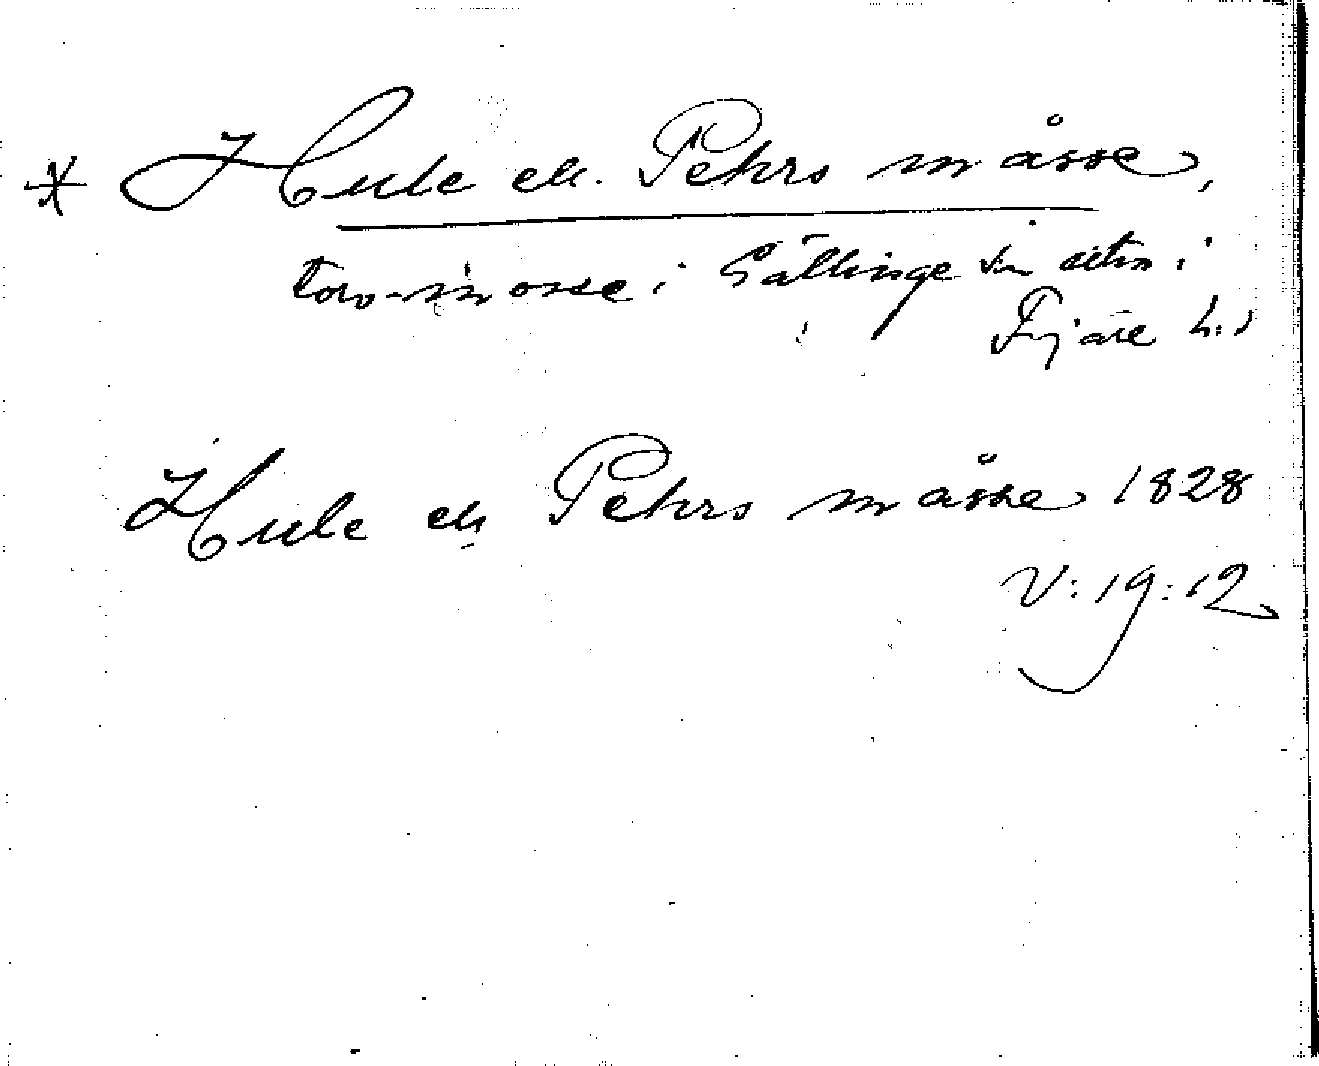 * Hule ell. Pehrs måsse,
torv-mosse i Gällinge s:n i
Fjäre h:d
Hule ell Pehrs måsse 1828
V:19:12